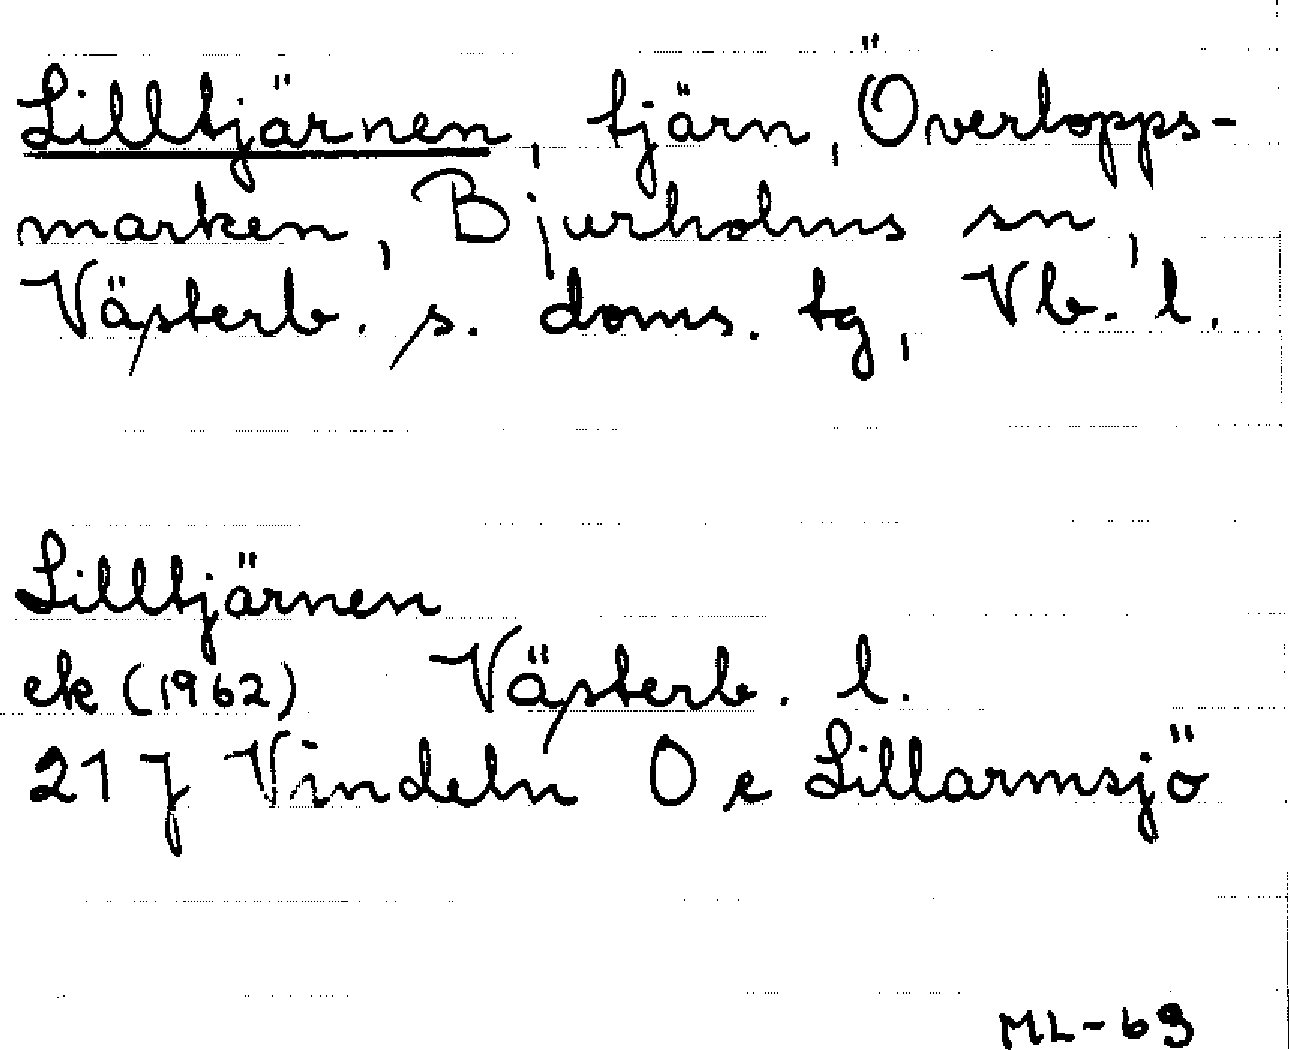 Lilltjärnen, tjärn, Överlopps-
marken, Bjurholms sn,
Västerb. s. doms. tg, Vb. l.
Lilltjärnen
ek (1962) Västerb. l.
21 J Vindeln O e Lillarmsjö
ML-69